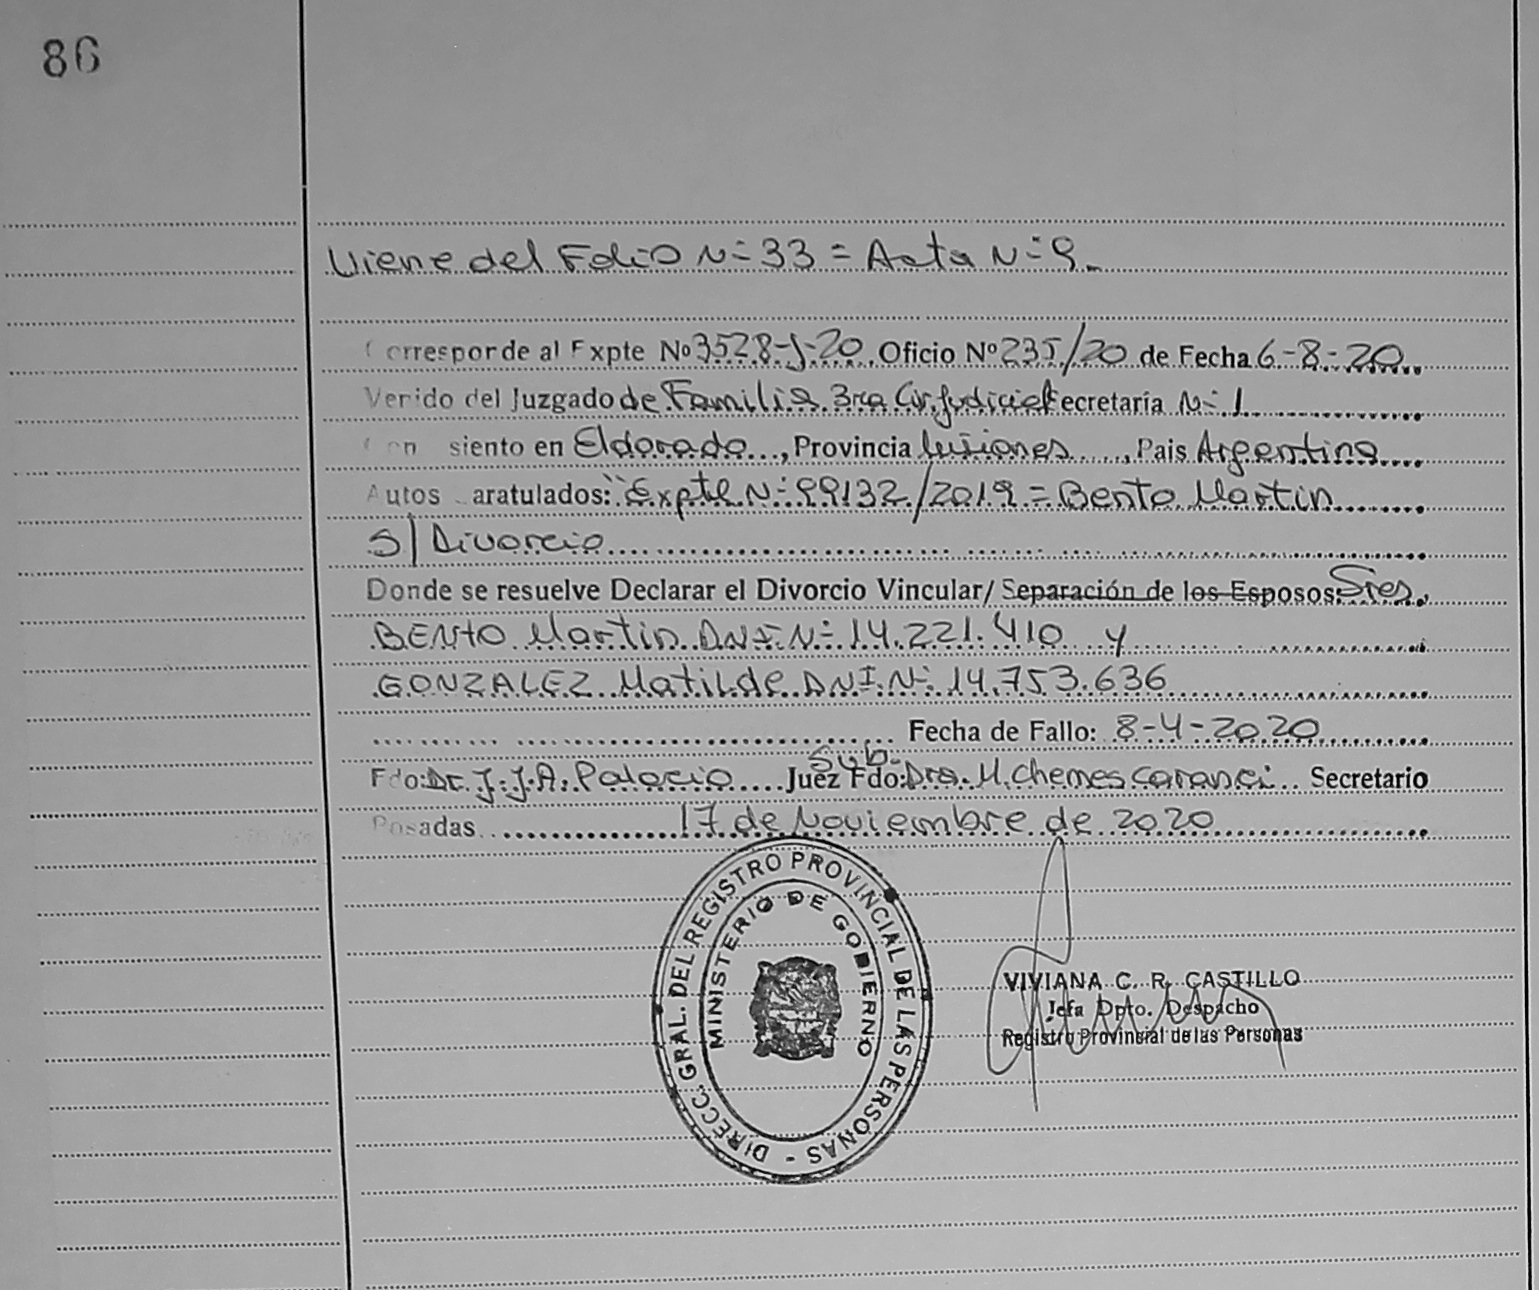 86
Viene del Folio N= 33 = Acta N= 9_
Corresporde al Expte Nº 3528-J-20 Oficio Nº 235/20 de Fecha 6-8-20
Verido del Juzgado de Familia 3ra Cir. Judicial Secretaría N= 1
Con siento en Eldorado, Provincia Misiones, Pais Argentina
Autos aratulados: "Expte N= 99132/2019 = Bento Martin
S/ Divorcio
Donde se resuelve Declarar el Divorcio Vincular/ Separación de los Esposos: Sres.
BENTO Martin DNI. N= 14.221.410 y
GONZALEZ Matilde DNI. N= 14.753.636
Fecha de Fallo: 8-4-2020
Sub-
Fdo: Dr. J. J. A. Palacio Juez Fdo: Dra. M. Chemes Caranci Secretario
Posadas 17 de Noviembre de 2020
DIRECC. GRAL. DEL REGISTRO PROVINCIAL DE LAS PERSONAS -
MINISTERIO DE GOBIERNO
VIVIANA C. R. CASTILLO
Jefa Dpto. Despacho
Registro Provincial de las Personas